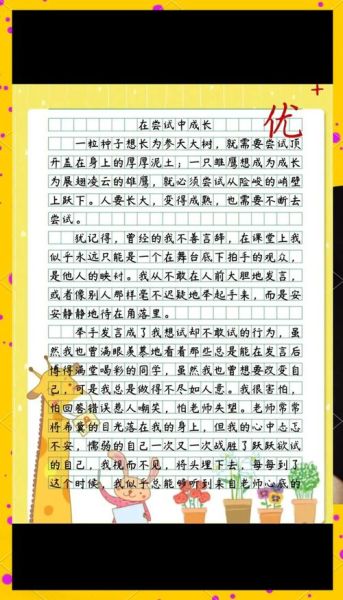 优
+
在尝试中成长
一粒种子想长为参天大树，就需要尝试顶
开盖在身上的厚厚泥土；一只雏鹰想成为成长
为展翅凌云的雄鹰，就必须尝试从险峻的峭壁
上跃下。人要长大，变得成熟，也需要不断去
尝试。
犹记得，曾经的我不善言辞，在课堂上我
似乎永远只能是一个在舞台底下拍手的观众，
是他人的映衬。我从不敢在人前大胆地发言，
或者像别人那样毫不迟疑地举起手来，而是安
安静静地待在角落里。
举手发言成了我想试却不敢试的行为，虽
然我也曾满眼羡慕地看着那些总是能在发言后
博得满堂喝彩的同学，虽然我也曾想要改变自
己，可是我总是做得不尽如人意。我很害怕，
怕回答错误惹人嘲笑，怕老师失望。老师常常
将希冀的目光落在我的身上，但我的心中忐忑
不安，懦弱的自己一次又一次战胜了跃跃欲试
的自己，我视而不见，将头埋下去，每每到了
这个时候，我似乎总能够听到来自老师心底的